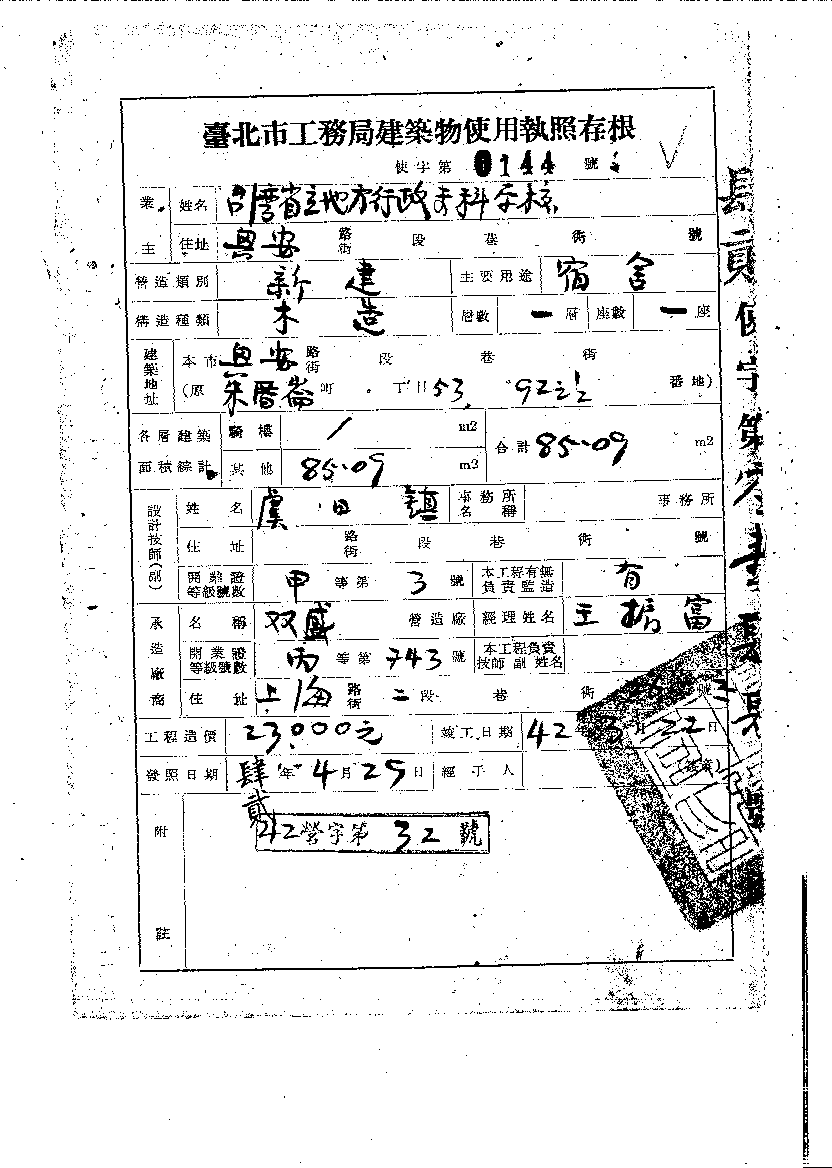 臺北市工務局建築物使用執照存根
使字第0144號
業主 姓名 台灣省立地方行政專科学校
住址 興安 路街 段 巷 街 號
營造類別 新建 主要用途 宿舍
構造種類 木造 層數 一層 座數 一座
建築地址 本市 興安 路街 段 巷 街
(原 朱厝崙 町 丁目 53, 92之½ 番地)
各層建築面積總計 騎樓 / m2 合計 85.09 m2
其他 85.09 m2
設計技師(副) 姓名 虞曰鎮 事務所名稱 事務所
住址 路街 段 巷 街 號
開業證等級號數 甲等第3號 本工程有無負責監造 有
承造廠商 名稱 双盛 營造廠 經理姓名 王振富
開業證等級號數 丙等第743號 本工程負責技師副姓名
住址 上海 路街 二段 巷 街 號
工程造價 23,000元 竣工日期 42年3月22日
發照日期 肆貳年4月25日 經手人 (蓋章)
附註
42營字第32號